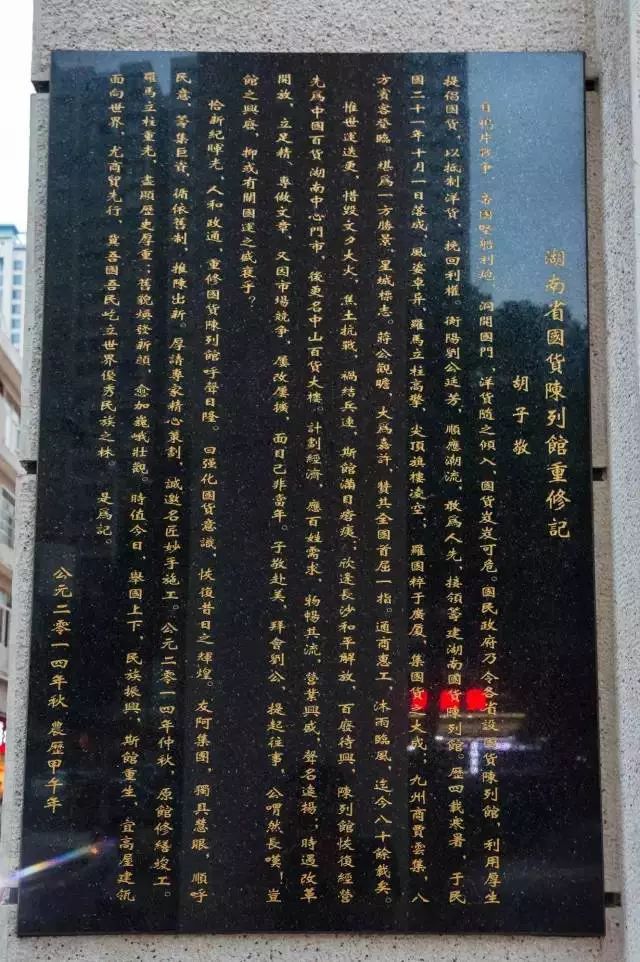 湖南省國貨陳列館重修記
胡子敬
自鴉片戰爭，各國堅船利炮，洞開國門，洋貨隨之傾入，國貨岌岌可危。國民政府乃令各省設國貨陳列館，利用厚生
提倡國貨，以抵制洋貨，挽回利權。衡陽劉公廷芳，順應潮流，敢為人先，接領籌建湖南國貨陳列館。歷四載寒暑，于民
國二十一年十月一日落成，風姿卓异，羅馬立柱高擎，尖頂旗樓凌空；羅國粹于廣厦，集國貨之大成；九州商賈雲集，八
方賓客登臨。堪為一方勝景，星城標志。蔣公觀瞻，大為嘉許，贊其全國首屈一指。通商惠工，沐雨臨風，迄今八十餘載矣。
惟世運迭更，惜毀文夕大火，焦土抗戰，禍結兵連，斯館滿目瘡痍；欣逢長沙和平解放，百廢待興，陳列館恢復經營
先為中國百貨湖南中心門市，後更名中山百貨大樓。計劃經濟，應百姓需求，物暢其流，營業興盛，聲名遠揚；時遇改革
開放，立足精、專做文章，又因市場競争，屢改屢擴，面目已非當年。子敬赴美，拜會劉公，提起往事，公喟然長嘆！豈
館之興廢，抑或有關國運之盛衰乎？
恰新紀暉光，人和政通，重修國貨陳列館呼聲日隆。曰强化國貨意識，恢復昔日之輝煌。友阿集團，獨具慧眼，順乎
民意，籌集巨資，循依舊制，推陳出新。厚請專家精心策劃，誠邀名匠妙手施工。公元二零一四年仲秋，原館修繕竣工。
羅馬立柱重光，盡顯歷史厚重；舊貌煥發新顔，愈加巍峨壯觀。時值今日，舉國上下，民族振興，斯館重生，宜高屋建瓴
面向世界，尤商貿先行，冀吾國吾民屹立世界優秀民族之林。是為記。
公元二零一四年秋 農歷甲午年